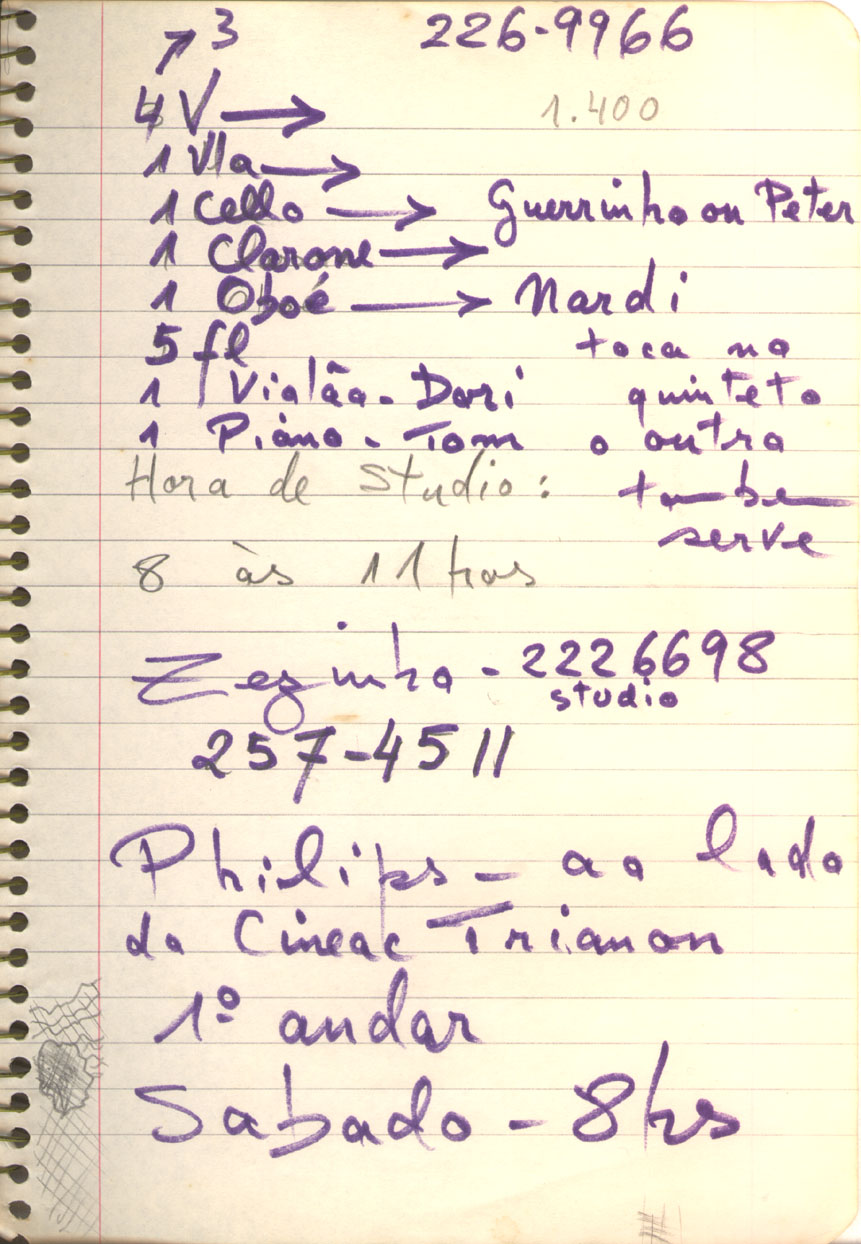 ↗ 3 226-9966
4 V → 1.400
1 Vla →
1 Cello → Guerrinho ou Peter
1 Clarone →
1 Oboé → Nardi
5 fl toca no
1 Violão - Dori quinteto
1 Piano - Tom o outro
Hora de Studio: tambem
serve
8 às 11 hras
Zezinho - 2226698
studio
257-4511
Philips - ao lado
do Cineac Trianon
1º andar
Sabado - 8hs